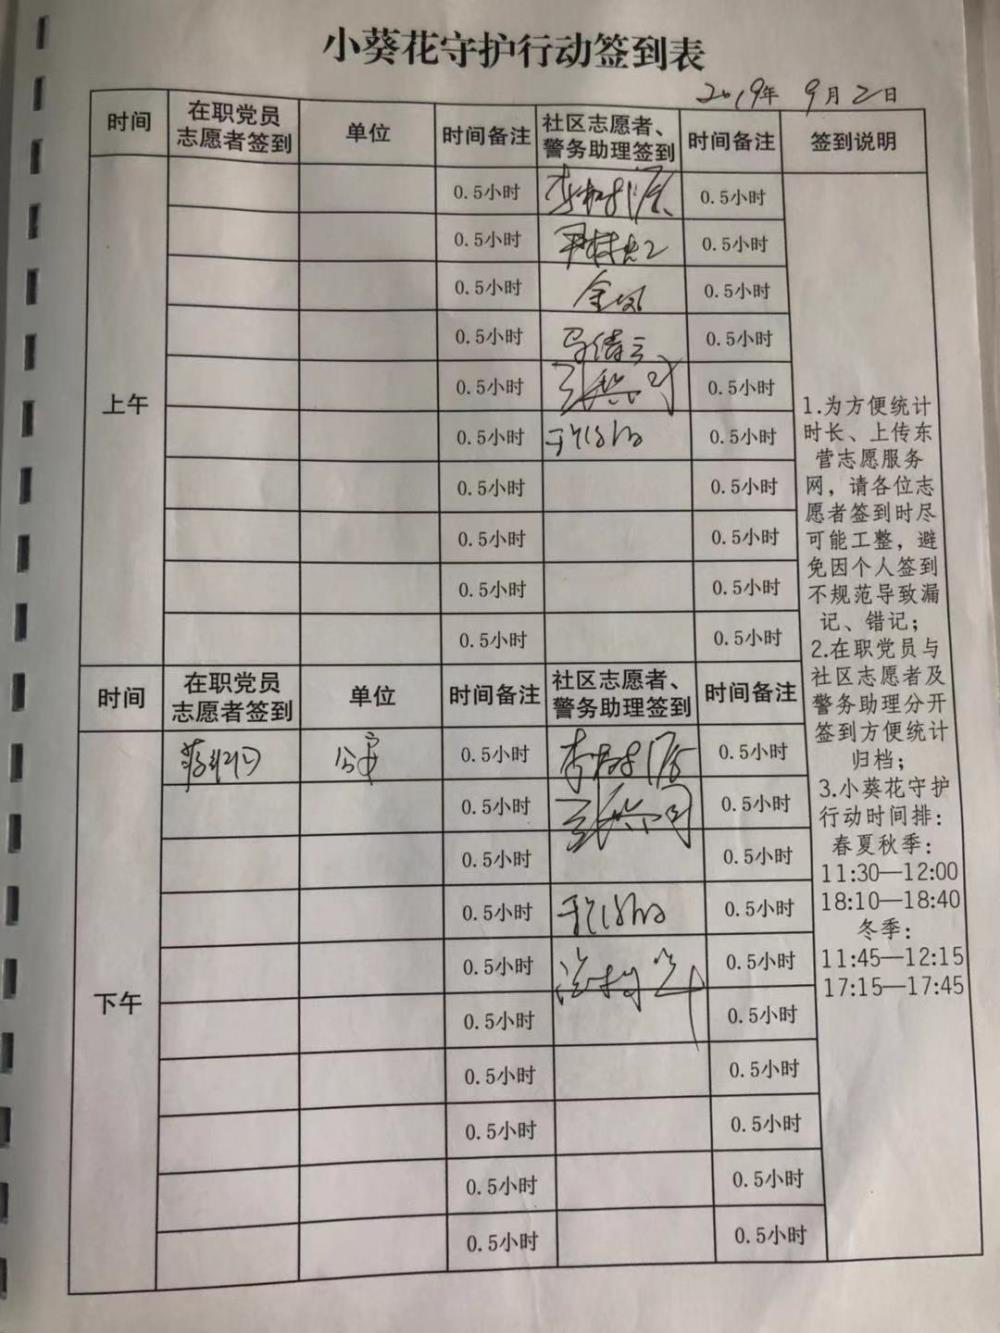 小葵花守护行动签到表
2019年 9月2日
时间
在职党员
志愿者签到
单位
时间备注
社区志愿者、
警务助理签到
时间备注
签到说明
上午
0.5小时 0.5小时
0.5小时 0.5小时
0.5小时 金凤 0.5小时
0.5小时 0.5小时
0.5小时 0.5小时
0.5小时 0.5小时
0.5小时 0.5小时
0.5小时 0.5小时
0.5小时 0.5小时
0.5小时 0.5小时
时间
在职党员
志愿者签到
单位
时间备注
社区志愿者、
警务助理签到
时间备注
下午
0.5小时 0.5小时
0.5小时 0.5小时
0.5小时 0.5小时
0.5小时 0.5小时
0.5小时 0.5小时
0.5小时 0.5小时
0.5小时 0.5小时
0.5小时 0.5小时
0.5小时 0.5小时
0.5小时 0.5小时
1.为方便统计
时长、上传东
营志愿服务
网，请各位志
愿者签到时尽
可能工整，避
免因个人签到
不规范导致漏
记、错记；
2.在职党员与
社区志愿者及
警务助理分开
签到方便统计
归档；
3.小葵花守护
行动时间排：
春夏秋季：
11:30—12:00
18:10—18:40
冬季：
11:45—12:15
17:15—17:45